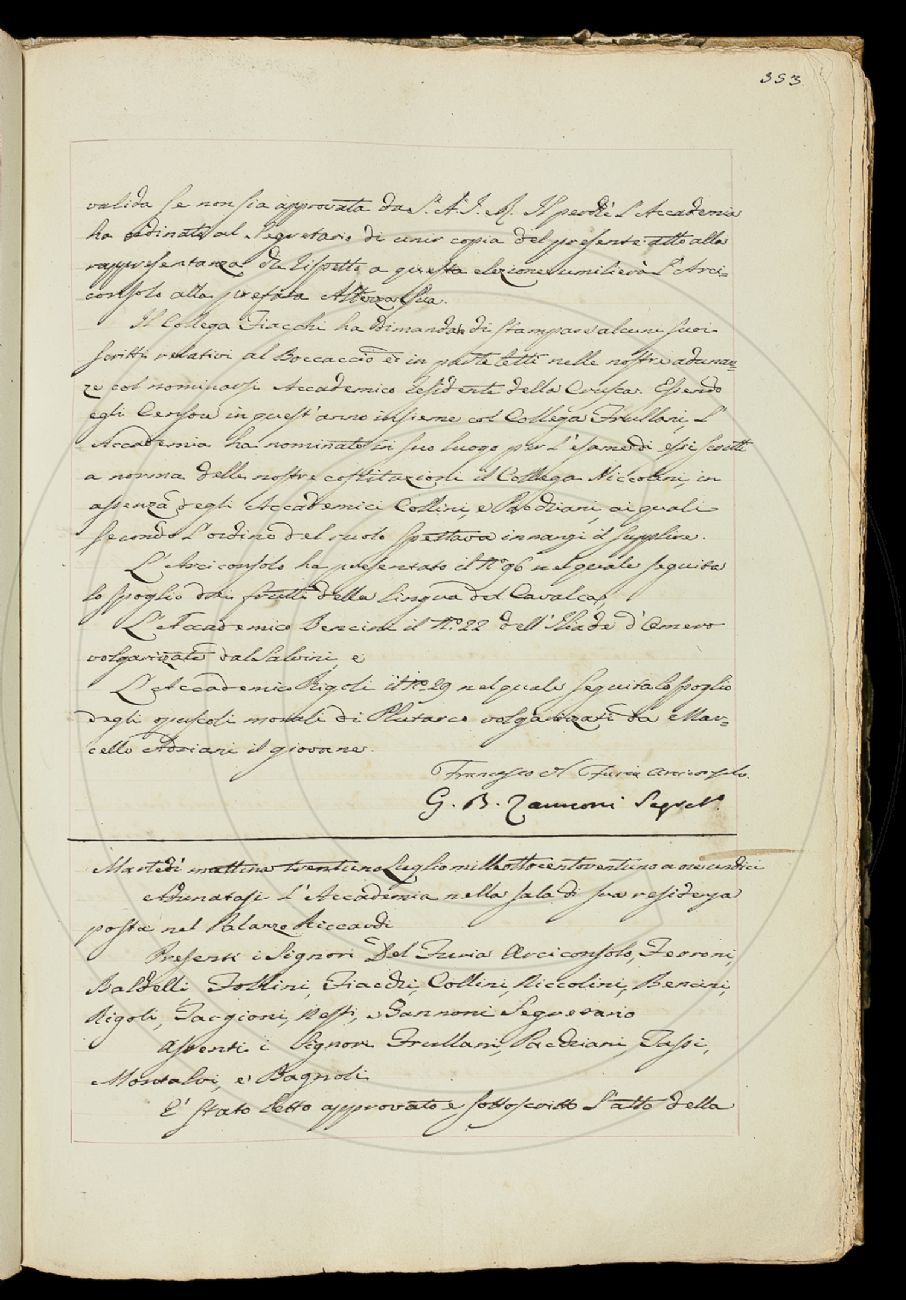 353
valida se non sia approvata da S. A. I. R. Il perchè l'Accademia
ha ordinato al Segretario di unir copia del presente atto alla
rappresentanza che rispetto a questa elezione umilierà l'Arci=
consolo alla prefata Altezza Sua.
Il Collega Fiacchi ha dimandato di stampare alcuni suoi
scritti relativi al Boccaccio ed in parte letti nelle nostre adunan=
ze col nominarsi Accademico residente della Crusca. Essendo
egli Censore in quest'anno insieme col Collega Frullani, l'
Accademia ha nominato in suo luogo per l'esame di essi scritti
a norma delle nostre costituzioni il Collega Niccolini, in
assenza degli Accademici Collini, e Pacchiani, ai quali
secondo l'ordine del ruolo spettava innanzi il supplire.
L'Arciconsolo ha presentato il N.º 96 nel quale seguita
lo spoglio dei frutti della lingua del Cavalca,
L'Accademico Bencini il N.º 22 dell'Iliade d'Omero
volgarizzata dal Salvini, e
L'Accademico Rigoli il N.º 29 nel quale seguita lo spoglio
degli opuscoli morali di Plutarco volgarizzati da Mar=
cello Adriani il giovane.
Francesco del Furia Arciconsolo
G. B. Zannoni Segret.º
Martedì mattina trentuno Luglio milleottocentoventuno a ore undici
Adunatasi l'Accademia nella sala di sua residenza
posta nel Palazzo Riccardi
Presenti i Signori Del Furia Arciconsolo, Ferroni,
Baldelli Follini, Fiacchi, Collini, Niccolini, Bencini,
Rigoli, Targioni, Nesti, e Zannoni Segretario
Assenti i Signori Frullani, Pacchiani, Tassi,
Montalvi, e Bagnoli
E' stato letto approvato e sottoscritto l'atto della